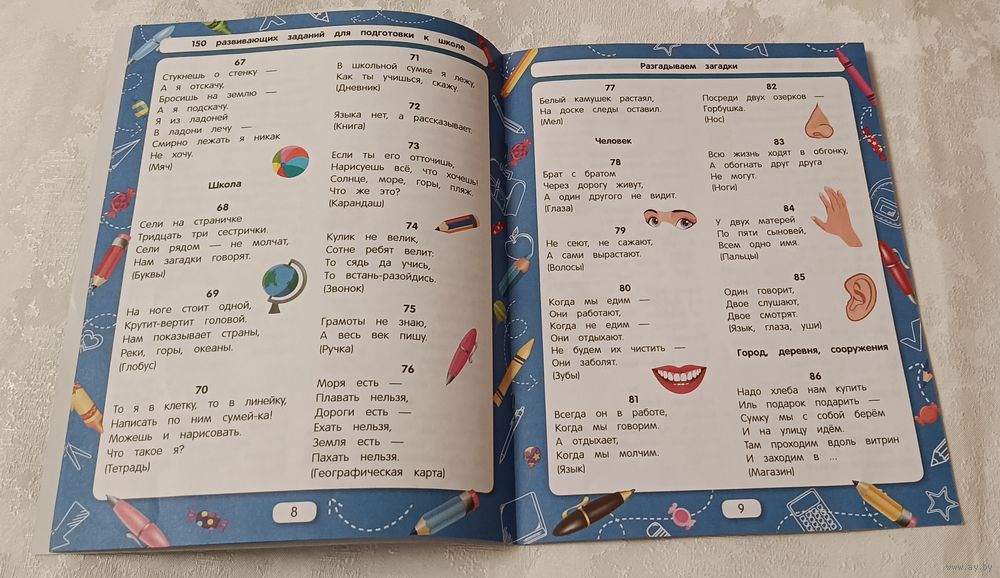 150 развивающих заданий для подготовки к школе
67
Стукнешь о стенку —
А я отскачу,
Бросишь на землю —
А я подскачу.
Я из ладоней
В ладони лечу —
Смирно лежать я никак
Не хочу.
(Мяч)
Школа
68
Сели на страничке
Тридцать три сестрички.
Сели рядом — не молчат,
Нам загадки говорят.
(Буквы)
69
На ноге стоит одной,
Крутит-вертит головой.
Нам показывает страны,
Реки, горы, океаны.
(Глобус)
70
То я в клетку, то в линейку,
Написать по ним сумей-ка!
Можешь и нарисовать.
Что такое я?
(Тетрадь)
71
В школьной сумке я лежу,
Как ты учишься, скажу.
(Дневник)
72
Языка нет, а рассказывает.
(Книга)
73
Если ты его отточишь,
Нарисуешь всё, что хочешь!
Солнце, море, горы, пляж.
Что же это?
(Карандаш)
74
Кулик не велик,
Сотне ребят велит:
То сядь да учись,
То встань-разойдись.
(Звонок)
75
Грамоты не знаю,
А весь век пишу.
(Ручка)
76
Моря есть —
Плавать нельзя,
Дороги есть —
Ехать нельзя,
Земля есть —
Пахать нельзя.
(Географическая карта)
8
Разгадываем загадки
77
Белый камушек растаял,
На доске следы оставил.
(Мел)
Человек
78
Брат с братом
Через дорогу живут,
А один другого не видит.
(Глаза)
79
Не сеют, не сажают,
А сами вырастают.
(Волосы)
80
Когда мы едим —
Они работают,
Когда не едим —
Они отдыхают.
Не будем их чистить —
Они заболят.
(Зубы)
81
Всегда он в работе,
Когда мы говорим.
А отдыхает,
Когда мы молчим.
(Язык)
82
Посреди двух озерков —
Горбушка.
(Нос)
83
Всю жизнь ходят в обгонку,
А обогнать друг друга
Не могут.
(Ноги)
84
У двух матерей
По пяти сыновей,
Всем одно имя.
(Пальцы)
85
Один говорит,
Двое слушают,
Двое смотрят.
(Язык, глаза, уши)
Город, деревня, сооружения
86
Надо хлеба нам купить
Иль подарок подарить —
Сумку мы с собой берём
И на улицу идём.
Там проходим вдоль витрин
И заходим в ...
(Магазин)
9
www.ay.by